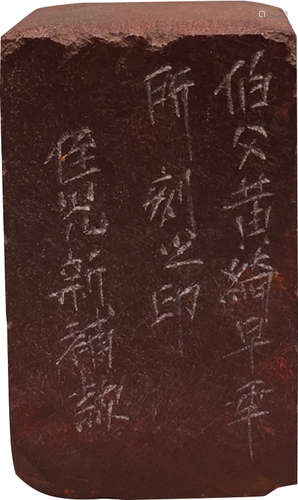 伯父黄綺早年
所刻之印
侄光新補款